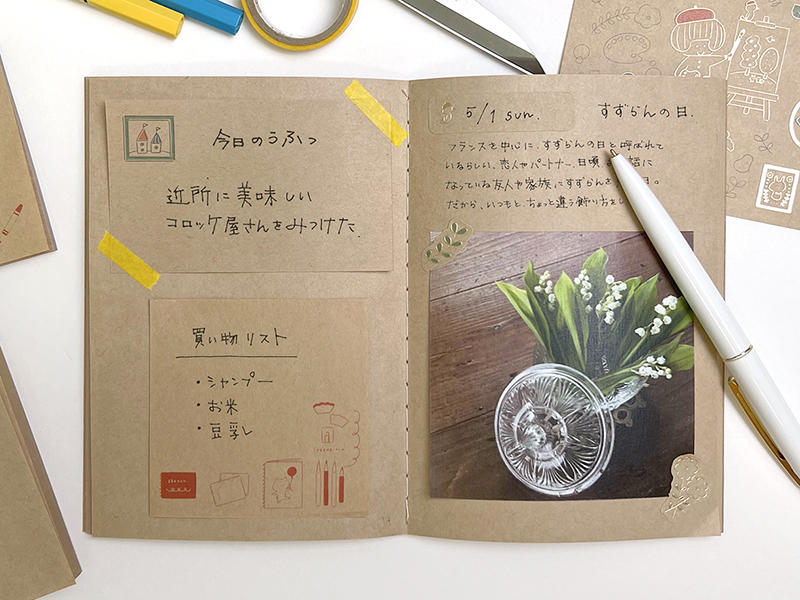 今日のうふっ
近所に美味しい
コロッケ屋さんをみつけた.
買い物リスト
・シャンプー
・お米
・豆乳
5/1 sun.
すずらんの日.
フランスを中心に、すずらんの日と呼ばれて
いるらしい、恋人やパートナー、日頃
なっている友人や家族にすずらんを
だから、いつもと、ちょっと違う飾り方を